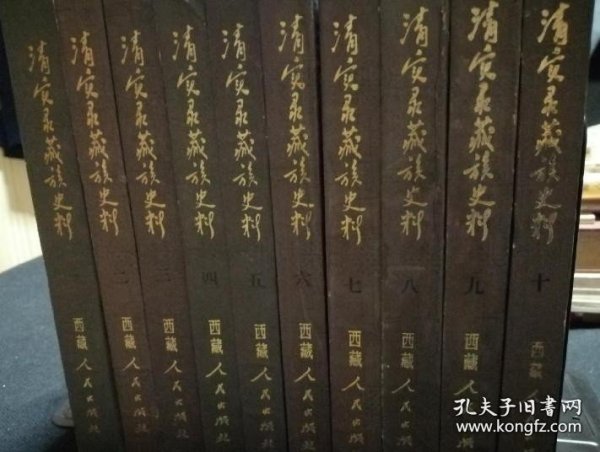 清实录藏族史料
一
西藏人民出版社
清实录藏族史料
二
西藏人民出版社
清实录藏族史料
三
西藏人民出版社
清实录藏族史料
四
西藏人民出版社
清实录藏族史料
五
西藏人民出版社
清实录藏族史料
六
西藏人民出版社
清实录藏族史料
七
西藏人民出版社
清实录藏族史料
八
西藏人民出版社
清实录藏族史料
九
西藏人民出版社
清实录藏族史料
十
西藏人民出版
孔夫子旧书网
www.kongfz.com